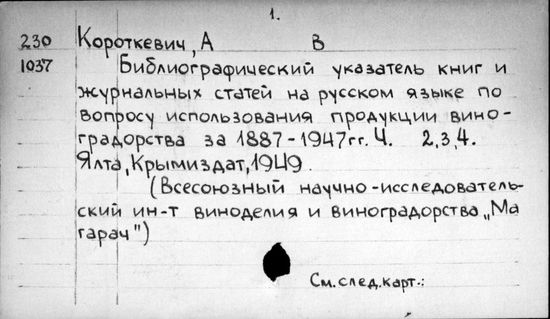 1.
230 Короткевич, А В
1037 Библиографический указатель книг и
журнальных статей на русском языке по
вопросу использования продукции вино-
градорства за 1887-1947гг. Ч. 2,3,4.
Ялта, Крымиздат, 1949.
(Всесоюзный научно-исследователь-
ский ин-т виноделия и виноградорства „Ма
гарач")
См. след. карт.: